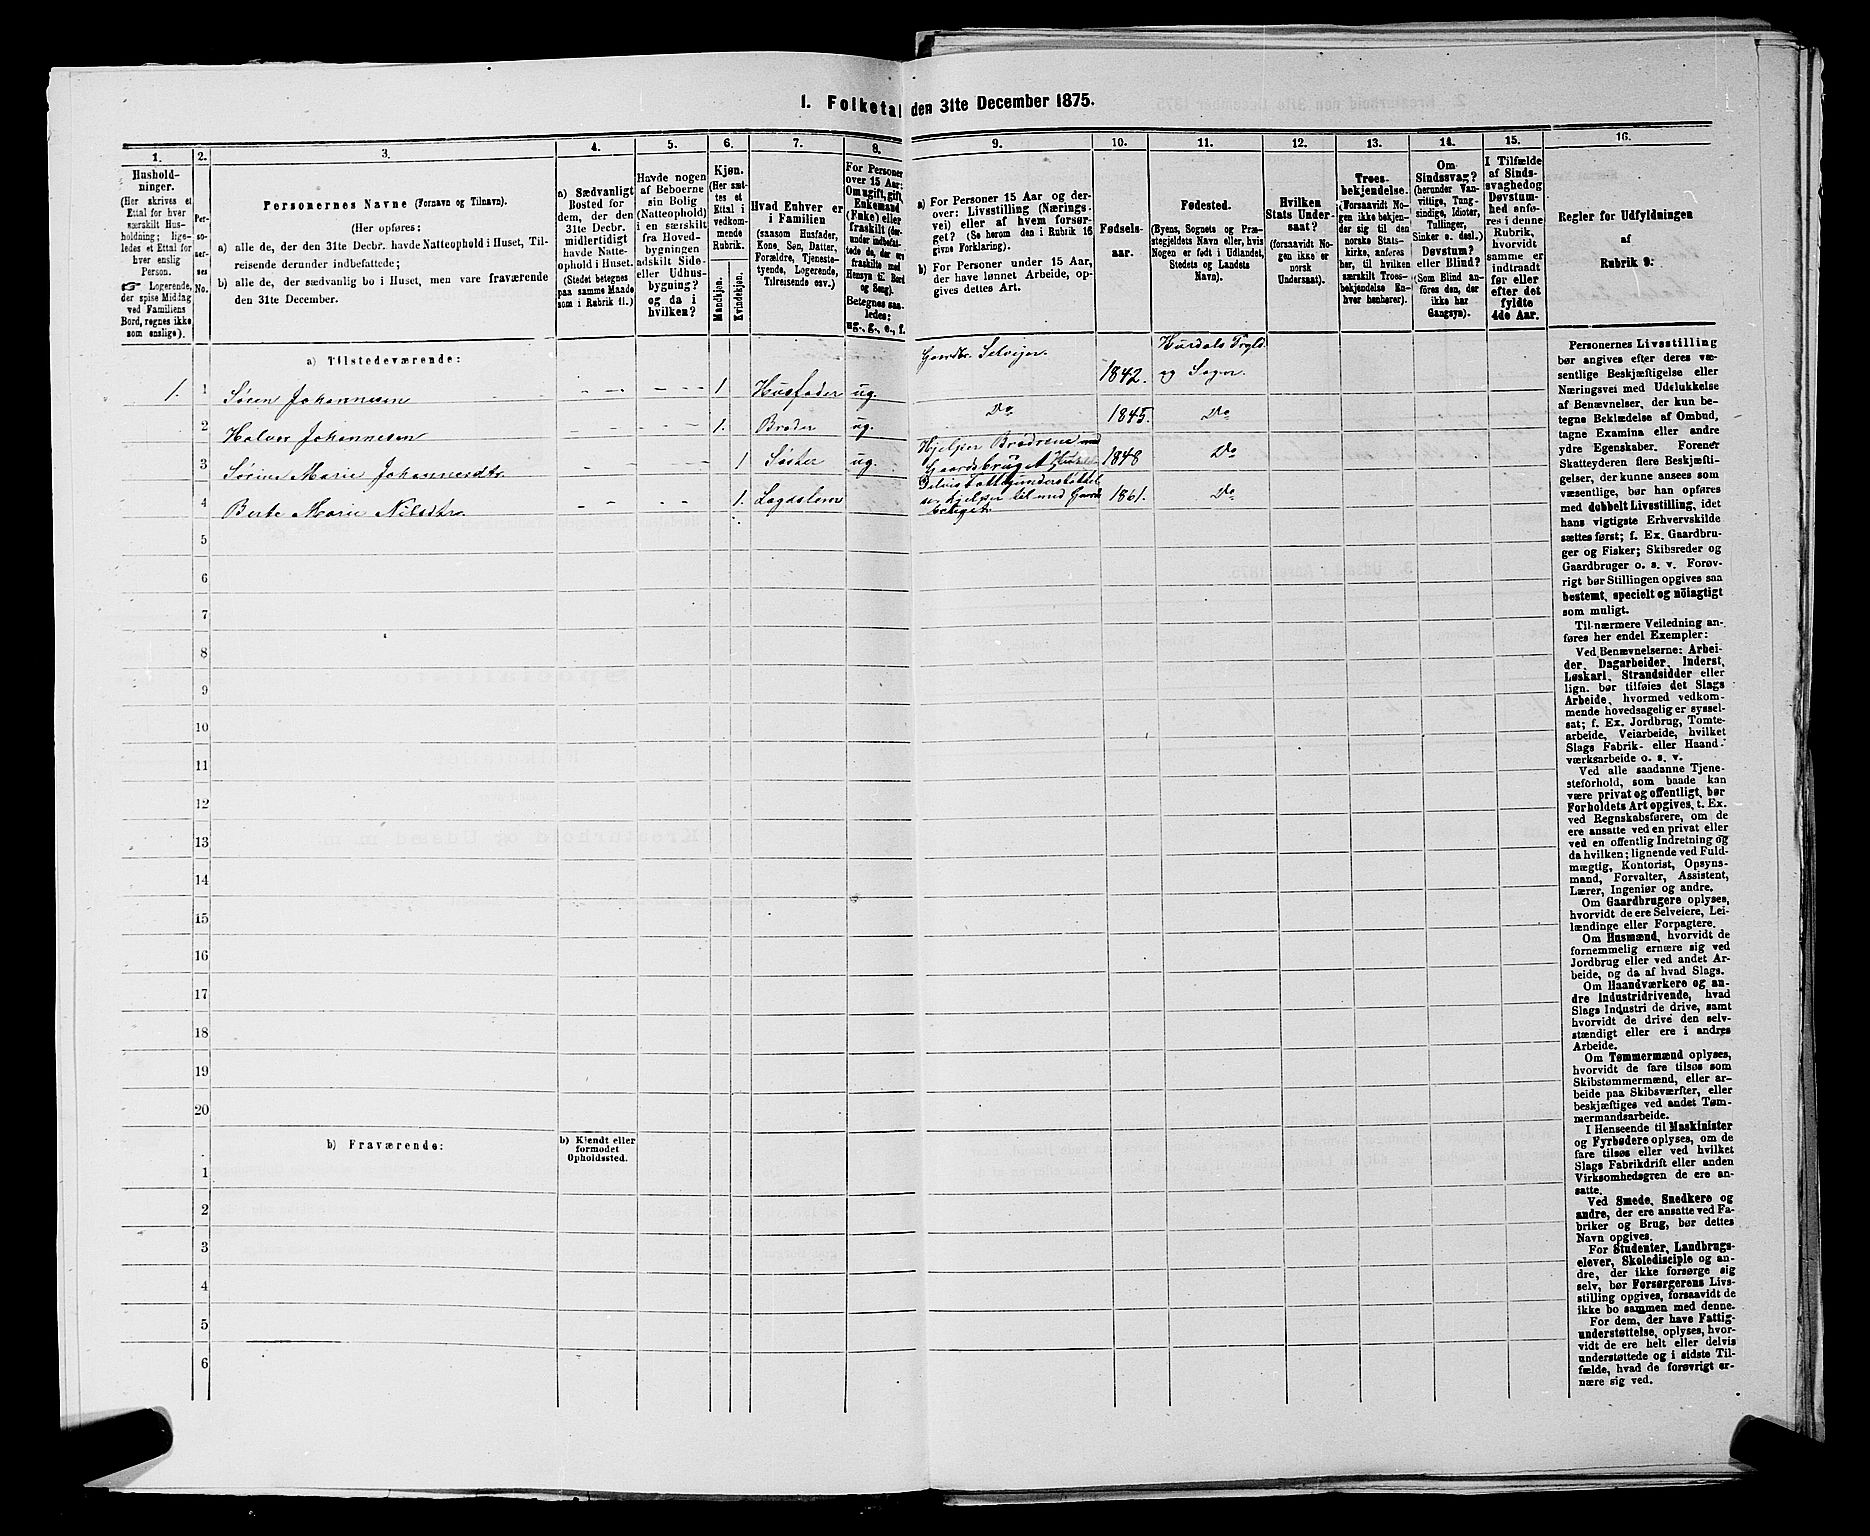 1. Folketal den 31te December 1875.
1.
Hushold-
ninger.
(Her skrives et
Ettal for hver
særskilt Hus-
holdning; lige-
ledes et Ettal for
hver enslig
Person.
☛ Logerende,
der spise Middag
ved Familiens
Bord, regnes ikke
som enslige).
2.
Per-
so-
ner-
nes
No.
3.
Personernes Navne (Fornavn og Tilnavn).
(Her opføres:
a) alle de, der den 31te Decbr. havde Natteophold i Huset, Til-
reisende derunder indbefattede;
b) alle de, der sædvanlig bo i Huset, men vare fraværende
den 31te December.
4.
a) Sædvanligt
Bosted for
dem, der den
31te Decbr.
midlertidigt
havde Natte-
ophold i Huset.
(Stedet betegnes
paa samme Maade
som i Rubrik 11.)
5.
Havde nogen
af Beboerne
sin Bolig
(Natteophold)
i en særskilt
fra Hoved-
bygningen
adskilt Side-
eller Udhus-
bygning?
og da i
hvilken?
6.
Kjøn.
(Her sæt-
tes et
Ettal i
vedkom-
mende
Rubrik.
Mandkjøn.
Kvindekjøn.
7.
Hvad Enhver er
i Familien
(saasom Husfader,
Kone, Søn, Datter,
Forældre, Tjeneste-
tyende, Logerende,
Tilreisende osv.)
8.
For Personer
over 15 Aar:
Om ugift, gift,
Enkemand
(Enke) eller
fraskilt (der-
under indbefat-
tede de, der ere
fraskilte med
Hensyn til Bord
og Seng).
Betegnes saa-
ledes:
ug., g., e., f.
9.
a) For Personer 15 Aar og der-
over: Livsstilling (Nærings-
vei) eller af hvem forsør-
get? (Se herom den i Rubrik 16
givne Forklaring).
b) For Personer under 15 Aar,
der have lønnet Arbeide, op-
gives dettes Art.
10.
Fødsels-
aar.
11.
Fødested.
(Byens, Sognets og Præ-
stegjeldets Navn eller, hvis
Nogen er født i Udlandet,
Stedets og Landets
Navn).
12.
Hvilken
Stats Under-
saat?
(forsaavidt No-
gen ikke er
norsk
Undersaat).
13.
Troes-
bekjendelse.
(Forsaavidt No-
gen ikke bekjen-
der sig til den
norske Stats-
kirke, anføres
her, til hvilken
særskilt Troes-
bekjendelse En-
hver henhører).
14.
Om
Sindssvag?
(herunder Van-
vittige, Tung-
sindige, Idioter,
Tullinger,
Sinker o. desl.)
Døvstum?
eller Blind?
(Som Blind an-
føres den, der
ikke har
Gangsyn).
15.
I Tilfælde
af Sinds-
svaghed og
Døvstum-
hed anfø-
res i denne
Rubrik,
hvorvidt
samme er
indtraadt
før eller
efter det
fyldte
4de Aar.
16.
Regler for Udfyldningen
af
Rubrik 9.
a) Tilstedeværende:
1. 1 Søren Johannesen – – – – – 1 Husfader ug. Gaardbr. Selveier. 1842. Hurdals Prgld. og Sogn.
2 Halvor Johannesen – – – – – 1. Broder ug. Do 1845. Do
3 Sørine Marie Johannesdtr – – – – 1 Søster ug. Hjelper Brødrene med Gaardsbruget 1848 Do
4 Berte Marie Nilsdtr. – – – – 1. Lægdslem 1861. Do
5
6
7
8
9
10
11
12
13
14
15
16
17
18
19
20
b) Fraværende:
b) Kjendt eller
formodet
Opholdssted.
1
2
3
4
5
6
Personernes Livsstilling
bør angives efter deres væ-
sentlige Beskjæftigelse eller
Næringsvei med Udelukkelse
af Benævnelser, der kun be-
tegne Beklædelse af Ombud,
tagne Examina eller andre
ydre Egenskaber. Forener
Skatteyderen flere Beskjæfti-
gelser, der kunne ansees som
væsentlige, bør han opføres
med dobbelt Livsstilling, idet
hans vigtigste Erhvervskilde
sættes først; f. Ex. Gaardbru-
ger og Fisker; Skibsreder og
Gaardbruger o. s. v. Forøv-
rigt bør Stillingen opgives saa
bestemt, specielt og nöiagtigt
som muligt.
Til nærmere Veiledning an-
føres her endel Exempler:
Ved Benævnelserne: Arbei-
der, Dagarbeider, Inderst,
Løskarl, Strandsidder eller
lign. bør tilføies det Slags
Arbeide, hvormed vedkom-
mende hovedsagelig er syssel-
sat; f. Ex. Jordbrug, Tomte-
arbeide, Veiarbeide, hvilket
Slags Fabrik- eller Haand-
værksarbeide o. s. v.
Ved alle saadanne Tjene-
steforhold, som baade kan
være privat og offentligt, bør
Forholdets Art opgives, t. Ex.
ved Regnskabsførere, om de
ere ansatte ved en privat eller
ved en offentlig Indretning og
da hvilken; lignende ved Fuld-
mægtig, Kontorist, Opsyns-
mand, Forvalter, Assistent,
Lærer, Ingeniør og andre.
Om Gaardbrugere oplyses,
hvorvidt de ere Selveiere, Lei-
lændinge eller Forpagtere.
Om Husmænd, hvorvidt de
fornemmelig ernære sig ved
Jordbrug eller ved andet Ar-
beide, og da af hvad Slags.
Om Haandværkere og an-
dre Industridrivende, hvad
Slags Industri de drive, samt
hvorvidt de drive den selv-
stændigt eller ere i andres
Arbeide.
Om Tømmermænd oplyses,
hvorvidt de fare tilsøs som
Skibstømmermænd, eller ar-
beide paa Skibsværfter, eller
beskjæftiges ved andet Tøm-
mermandsarbeide.
I Henseende til Maskinister
og Fyrbødere oplyses, om de
fare tilsøs eller ved hvilket
Slags Fabrikdrift eller anden
Virksomhedsgren de ere an-
satte.
Ved Smede, Snedkere og
andre, der ere ansatte ved Fa-
briker og Brug, bør dettes
Navn opgives.
For Studenter, Landbrugs-
elever, Skoledisciple og an-
dre, der ikke forsørge sig
selv, bør Forsørgerens Livs-
stilling opgives, forsaavidt de
ikke bo sammen med denne.
For dem, der have Fattig-
understøttelse, oplyses, hvor-
vidt de ere helt eller delvis
understøttede og i sidste Til-
fælde, hvad de forøvrigt er-
nære sig ved.